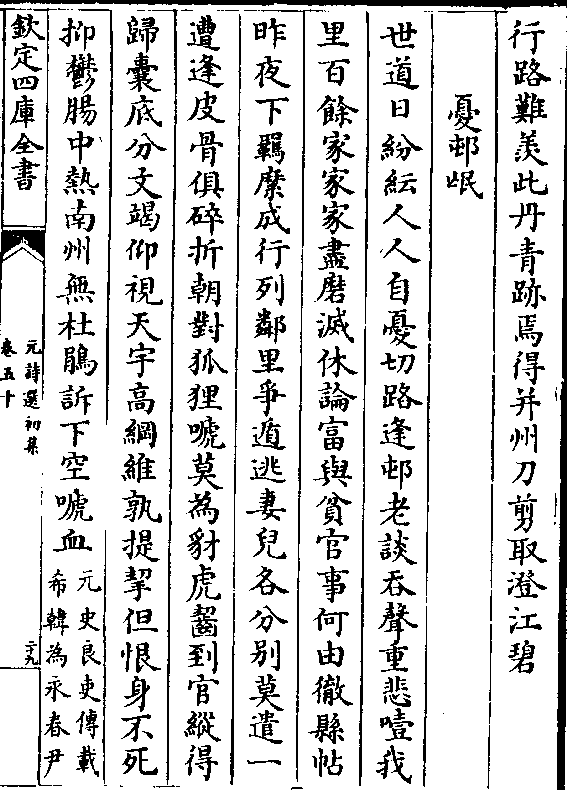 行路難羨此丹青跡焉得并州刀剪取澄江碧
憂邨岷
世道日紛紜人人自憂切路逢邨老談吞聲重悲噎我
里百餘家家家盡磨滅休論富與貧官事何由徹縣帖
昨夜下羈縻成行列鄰里爭遁逃妻兒各分别莫遣一
遭逢皮骨俱碎折朝對狐狸嗁莫為豺虎齧到官縱得
歸囊底分文竭仰視天宇高綱維孰提挈但恨身不死
抑鬱腸中熱南州無杜鵑訴下空嗁血元史良吏傳載
希韓為永春尹
欽定四庫全書
元詩選初集
卷五十
二九